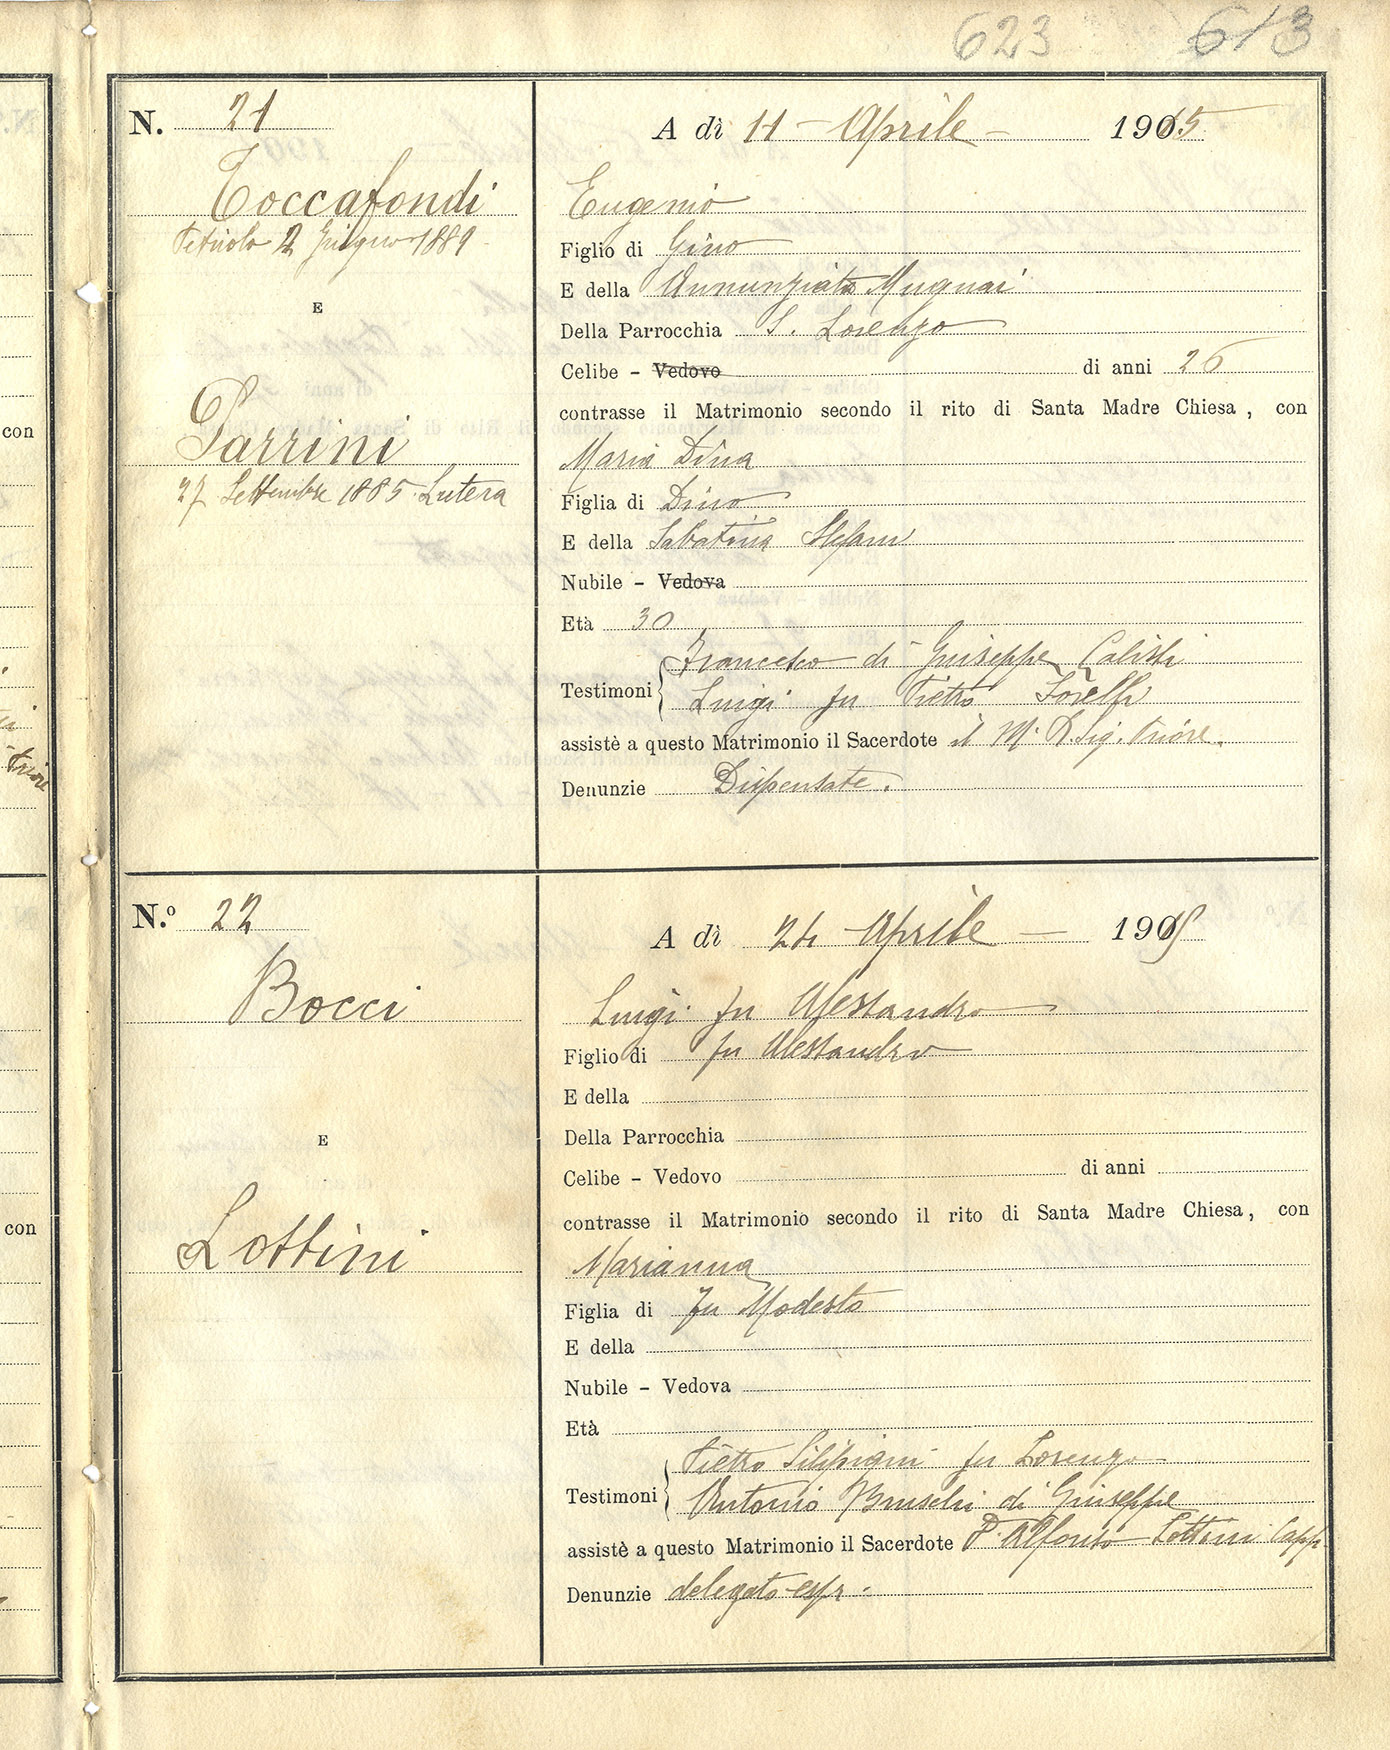 623 613
N. 21
Toccafondi
Petriolo 2 Giugno 1889
E
Parrini
27 Settembre 1885 Lutera
A dì 11 - Aprile - 1915
Eugenio
Figlio di Gino
E della Annunziata Mugnai
Della Parrocchia S. Lorenzo
Celibe - Vedovo di anni 26
contrasse il Matrimonio secondo il rito di Santa Madre Chiesa, con
Maria Dina
Figlia di Dino
E della Sabatina Stefani
Nubile - Vedova
Età 30
Francesco di Giuseppe Calisti
Testimoni
Luigi fu Pietro
assistè a questo Matrimonio il Sacerdote il M. R. Sig. Priore.
Denunzie Dispensate.
N.º 22
Bocci
E
Lottini
A dì 24 Aprile 1915
Luigi fu Alessandro
Figlio di fu Alessandro
E della
Della Parrocchia
Celibe - Vedovo di anni
contrasse il Matrimonio secondo il rito di Santa Madre Chiesa, con
Marianna
Figlia di fu Modesto
E della
Nubile - Vedova
Età
Pietro Filipigni fu Lorenzo
Testimoni
Antonio Bruschi di Giuseppe
assistè a questo Matrimonio il Sacerdote P. Alfonso Lottini Capp.
Denunzie delegato espr.
con
Priore
con